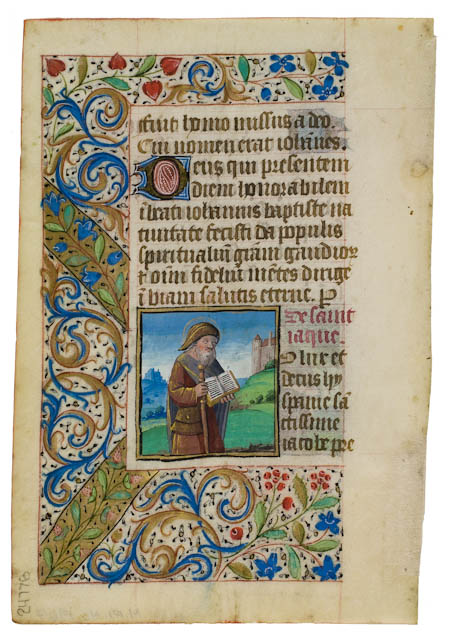 ffuit homo missus a deo.
Cui nomen erat iohānes.
Deus qui presentem
diem honorabilem
ī beati iohannis baptiste na
tiuitate fecisti da populis
spiritualiū grām gaudior
et oīm fidelū mētes dirige
ī viam salutis eterne. P
De saint
iaque.
O lux et
decus hy
spanie sā
ctissime
iacobe pre
24778